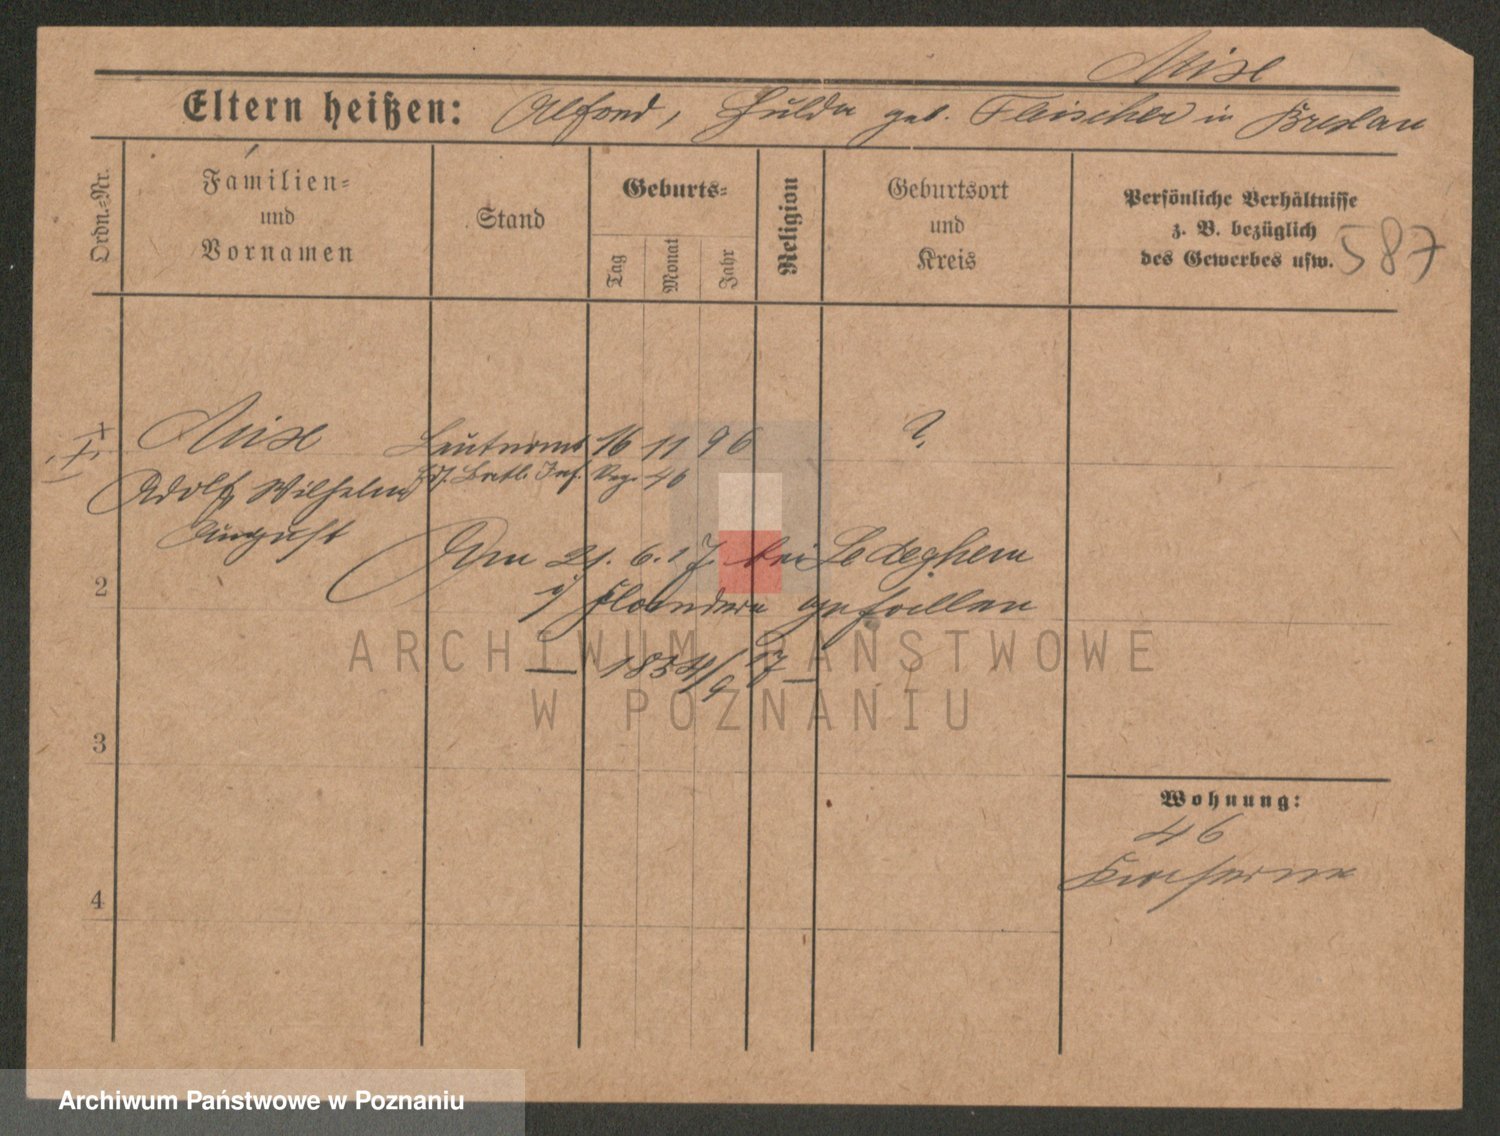 Eltern heißen: Alfred, Hulda geb. Fleischer in Breslau
Ordn.=Nr.
Familien=
und
Vornamen
Stand
Geburts=
Tag
Monat
Jahr
Religion
Geburtsort
und
Kreis
Persönliche Verhältnisse
z. B. bezüglich
des Gewerbes usw.
587
Leutnant 16 11 96 ?
Adolf Wilhelm Inf. Reg. 46
August
Am 21. 6. 17. bei Ledeghem
i/ Flandern gefallen
— 1834/17 —
2
3
4
Wohnung:
46
Kaserne
ARCHIWUM PAŃSTWOWE
W POZNANIU
Archiwum Państwowe w Poznaniu